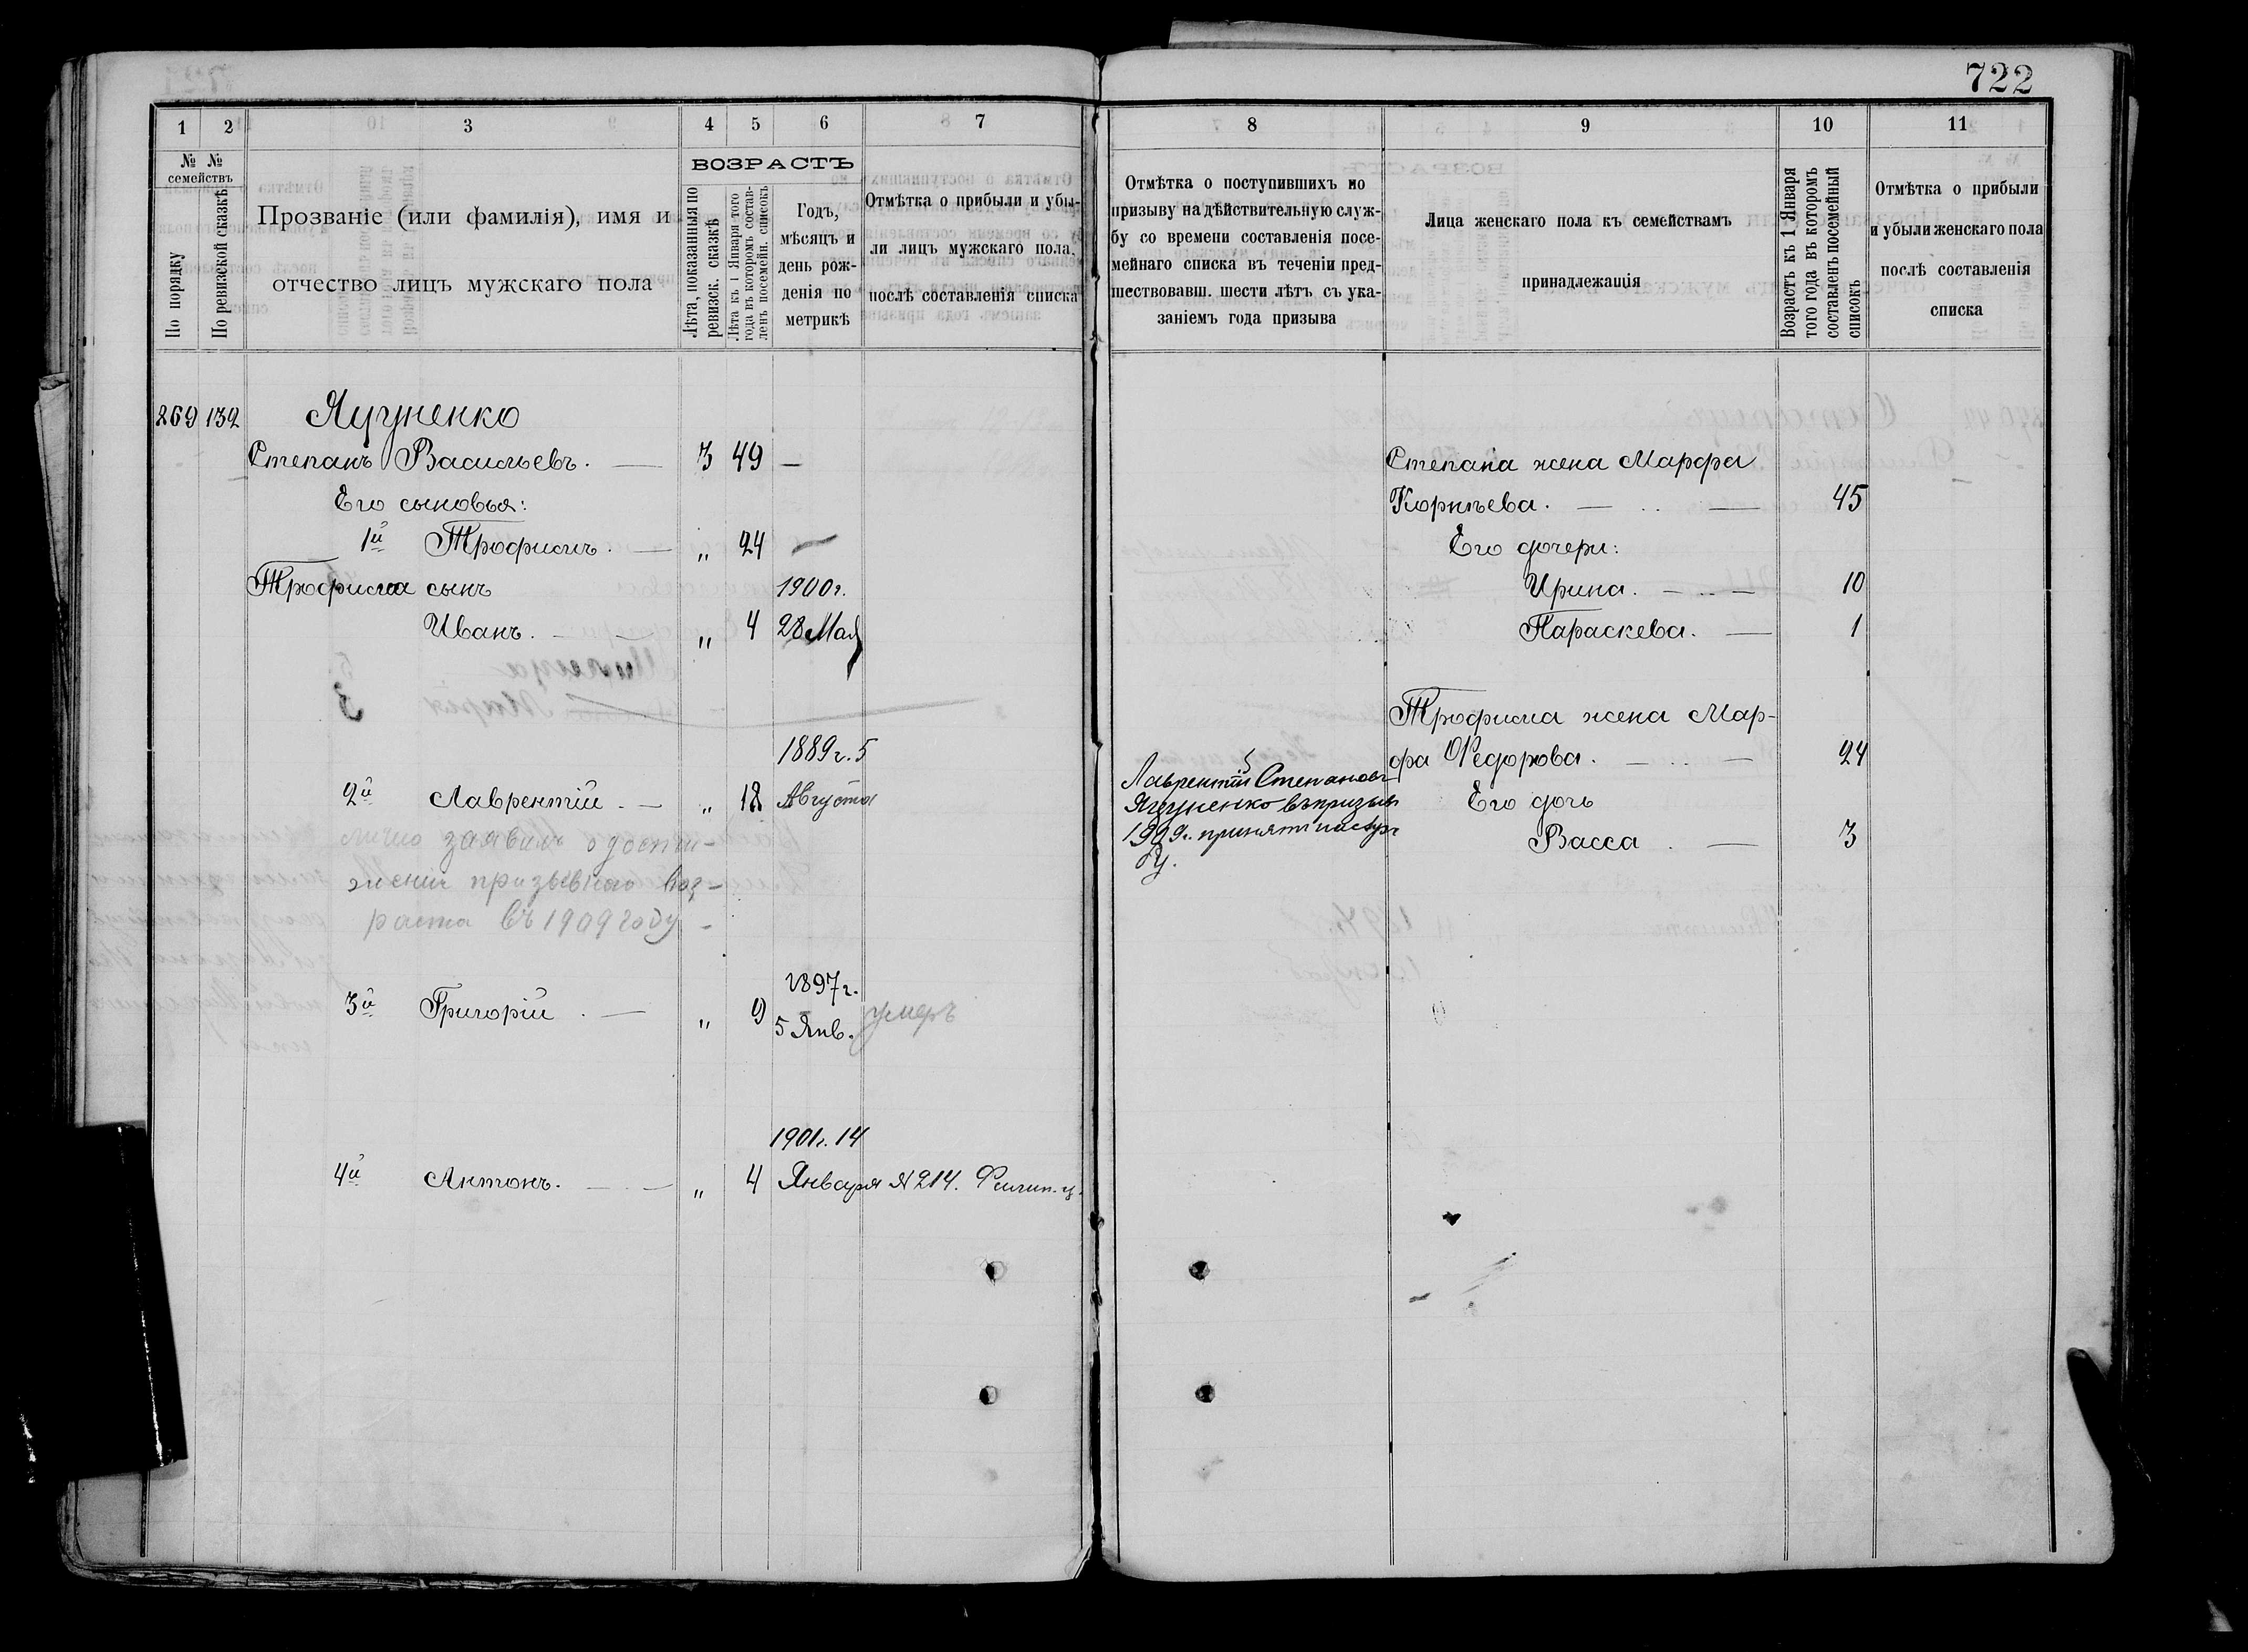 722
1 2 3 4 5 6 7
№ № семействъ
По порядку
По ревизской сказкѣ
Прозваніе (или фамилія), имя и
отчество лицъ мужскаго пола
ВОЗРАСТЪ
Лѣта, показанныя по
ревизск. сказкѣ
Лѣта къ 1 Января того
года въ которомъ состав-
ленъ посемейн. списокъ
Годъ,
мѣсяцъ и
день рож-
денія по
метрикѣ
Отмѣтка о прибыли и убы-
ли лицъ мужскаго пола,
послѣ составленія списка
269 132
Степанъ Васильевъ. 3 49 —
Его сыновья:
1й Трофимъ. — „ 24 —
Трофима сынъ 1900г.
Иванъ. — „ 4 28 Мая
1889г. 5
2й Лаврентій. — „ 18 Августа
лично заявилъ о дости-
женіи призывнаго воз-
раста въ 1909 году
1897г.
3й Григорій — „ 9 5 Янв. умеръ
1901г. 14
4й Антонъ. — „ 4 Января №214.
8 9 10 11
Отмѣтка о поступившихъ по
призыву на дѣйствительную служ-
бу со времени составленія посе-
мейнаго списка въ теченіи пред-
шествовавш. шести лѣтъ съ ука-
заніемъ года призыва
Лица женскаго пола къ семействамъ
принадлежащія
Возрастъ къ 1 Января
того года въ которомъ
составленъ посемейный
списокъ
Отмѣтка о прибыли
и убыли женскаго пола
послѣ составленія
списка
Степана жена Марфа
Корнѣева. — 45
Его дочери:
Ирина. — 10
Параскева. — 1
Трофима жена Мар-
фа Федорова. — 24
Его дочь
Васса — 3
Лаврентій Степановъ
въ призывъ
1909г. принятъ на служ
бу.